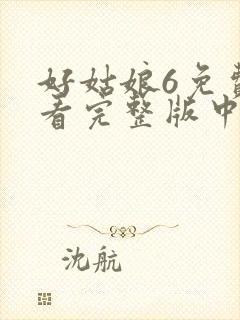 好姑娘6免费
看完整版中
沈航